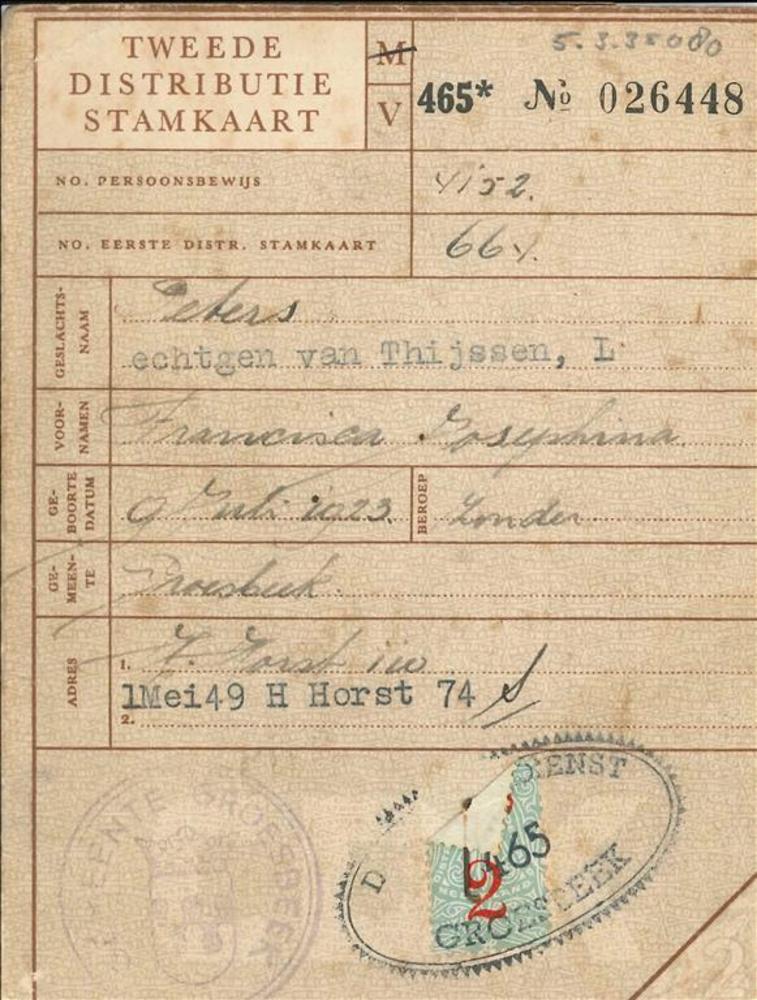 TWEEDE
DISTRIBUTIE
STAMKAART
M
V
465* № 026448
NO. PERSOONSBEWIJS
4152.
NO. EERSTE DISTR. STAMKAART
GESLACHTS-
NAAM
Peters
echtgen van Thijssen, L
VOOR-
NAMEN
Francisca Josephina.
GE-
BOORTE
DATUM
9 Juli 1923.
BEROEP
Zonder
GE-
MEEN-
TE
Groesbeek.
ADRES
1. H. Horst
1Mei49 H Horst 74
2.
GEMEENTE GROESBEEK
D ENST
465
2
GROESBEEK